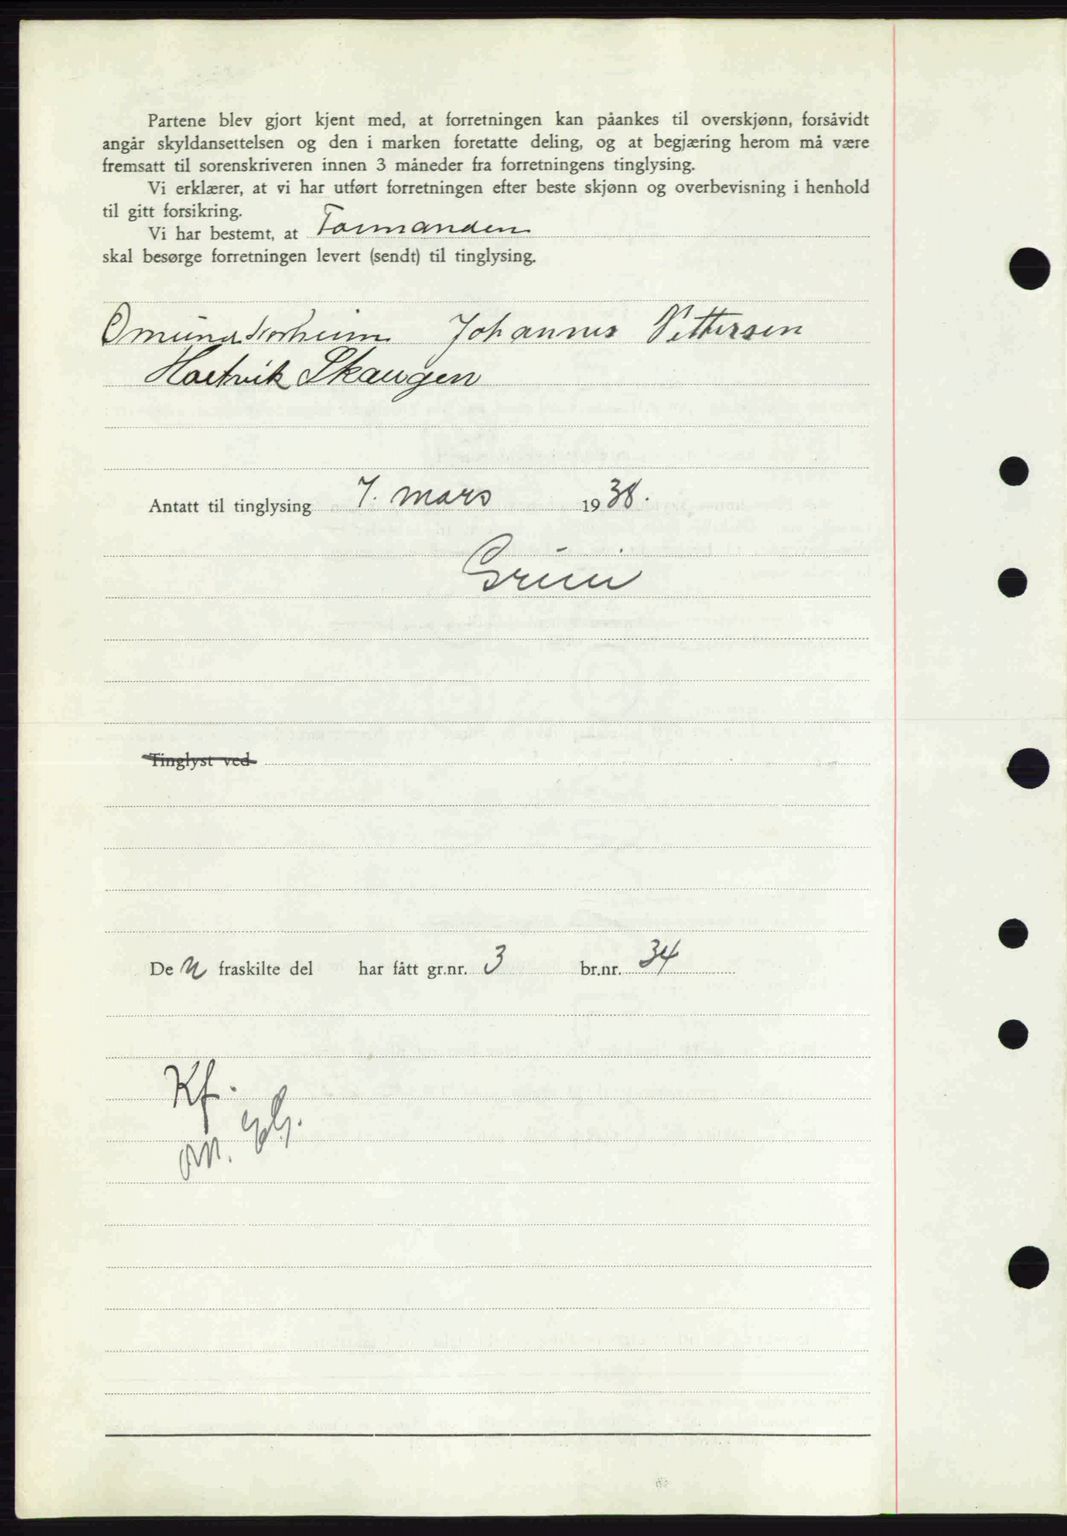 Partene blev gjort kjent med, at forretningen kan påankes til overskjønn, forsåvidt
angår skyldansettelsen og den i marken foretatte deling, og at begjæring herom må være
fremsatt til sorenskriveren innen 3 måneder fra forretningens tinglysing.
Vi erklærer, at vi har utført forretningen efter beste skjønn og overbevisning i henhold
til gitt forsikring.
Vi har bestemt, at Formanden
skal besørge forretningen levert (sendt) til tinglysing.
Johannes Pettersen
Skaugen
Antatt til tinglysing 7. mars 1938.
Tinglyst ved
De n fraskilte del har fått gr.nr. 3 br.nr. 34
Kf.